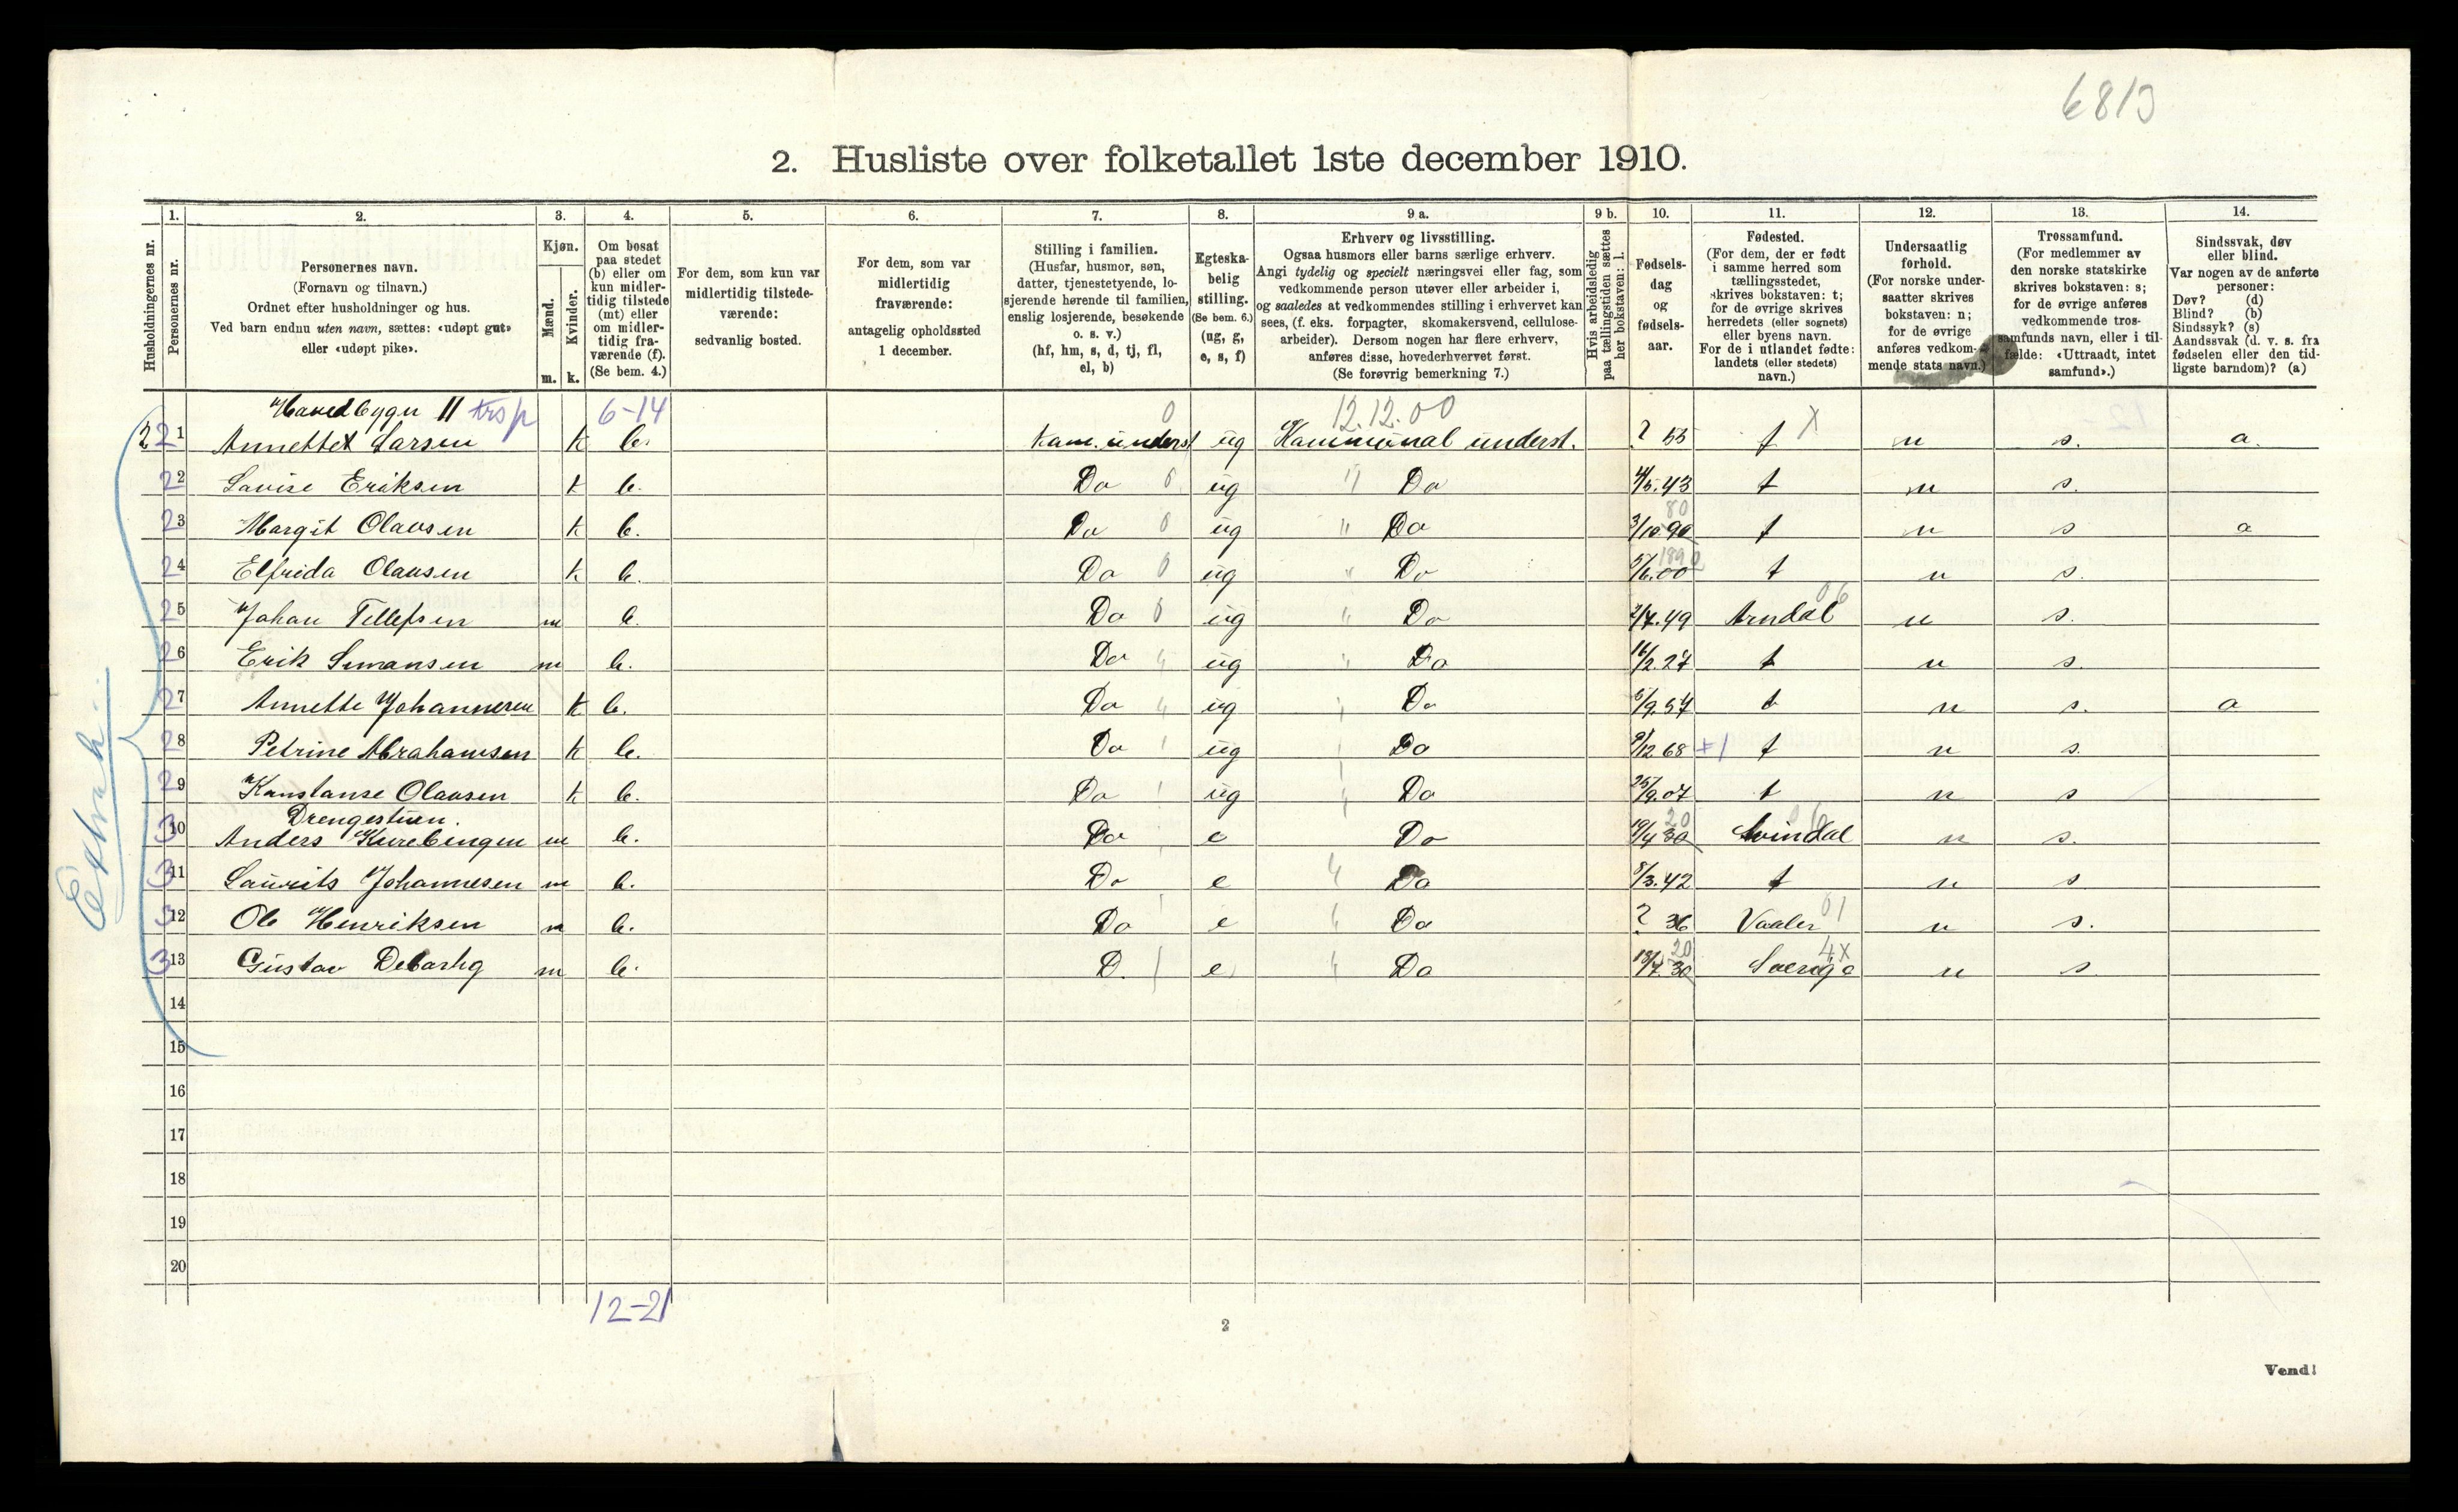 6813
2. Husliste over folketallet 1ste december 1910.
Husholdningernes nr.
1.
Personernes nr.
2.
Personernes navn.
(Fornavn og tilnavn.)
Ordnet efter husholdninger og hus.
Ved barn endnu uten navn, sættes: «udøpt gut»
eller «udøpt pike».
3.
Kjøn.
Mænd.
Kvinder.
m. k.
4.
Om bosat
paa stedet
(b) eller om
kun midler-
tidig tilstede
(mt) eller
om midler-
tidig fra-
værende (f).
(Se bem. 4.)
5.
For dem, som kun var
midlertidig tilstede-
værende:
sedvanlig bosted.
6.
For dem, som var
midlertidig
fraværende:
antagelig opholdssted
1 december.
7.
Stilling i familien.
(Husfar, husmor, søn,
datter, tjenestetyende, lo-
sjerende hørende til familien,
enslig losjerende, besøkende
o. s. v.)
(hf, hm, s, d, tj, fl,
el, b)
8.
Egteska-
belig
stilling.
(Se bem. 6.)
(ug, g,
e, s, f)
9 a.
Erhverv og livsstilling.
Ogsaa husmors eller barns særlige erhverv.
Angi tydelig og specielt næringsvei eller fag, som
vedkommende person utøver eller arbeider i,
og saaledes at vedkommendes stilling i erhvervet kan
sees, (f. eks. forpagter, skomakersvend, cellulose-
arbeider). Dersom nogen har flere erhverv,
anføres disse, hovederhvervet først.
(Se forøvrig bemerkning 7.)
9 b.
Hvis arbeidsledig
paa tællingstiden sættes
her bokstaven: l.
10.
Fødsels-
dag
og
fødsels-
aar.
11.
Fødested.
(For dem, der er født
i samme herred som
tællingsstedet,
skrives bokstaven: t;
for de øvrige skrives
herredets (eller sognets)
eller byens navn.
For de i utlandet fødte:
landets (eller stedets)
navn.)
12.
Undersaatlig
forhold.
(For norske under-
saatter skrives
bokstaven: n;
for de øvrige
anføres vedkom-
mende stats navn.)
13.
Trossamfund.
(For medlemmer av
den norske statskirke
skrives bokstaven: s;
for de øvrige anføres
vedkommende tros-
samfunds navn, eller i til-
fælde: «Uttraadt, intet
samfund».)
14.
Sindssvak, døv
eller blind.
Var nogen av de anførte
personer:
Døv? (d)
Blind? (b)
Sindssyk? (s)
Aandssvak (d. v. s. fra
fødselen eller den tid-
ligste barndom)? (a)
Hovedbygn II 6-14 0 12.12.00
2 2 1 Annettet Larsen k b. Kom. underst ug Kommunal underst. ? 55 t X n s. a.
2 2 Lovise Eriksen k b. Do 0 ug " Do 4/5.43 t n s.
2 3 Margit Olausen k b. Do 0 ug " Do 3/10.90 80 t n s a
2 4 Elfrida Olausen k b. Do 0 ug " Do 5/6.00 1890 t n s.
2 5 Johan Tellefsen m b. Do 0 ug " Do 2/7.49 Arndal 06 n s.
2 6 Erik Simonsen m b. Do ug " Do 16/2.27 t n s.
2 7 Annette Johannesen k b. Do ug Do 5/9.57 t n s. a
2 8 Petrine Abrahamsen k b. Do ug Do 9/12 68 t n s.
2 9 Konstanse Olausen k b. Do ug Do 25/9.07 t n s
Drengestuen.
3 10 Anders m b. Do e Do 19/4 30 20 Svindal n s.
3 11 Laurits Johannesen m b. Do e Do 8/3.42 t n s
3 12 Ole Henriksen m b. Do e Do ? 36 Vaaler 01 n s.
3 13 Gustav m b. D. e Do 18/7.30 20 Sverige 4X n s.
14
15
16
17
18
19
20
Extrah.
12-21
2
Vend!